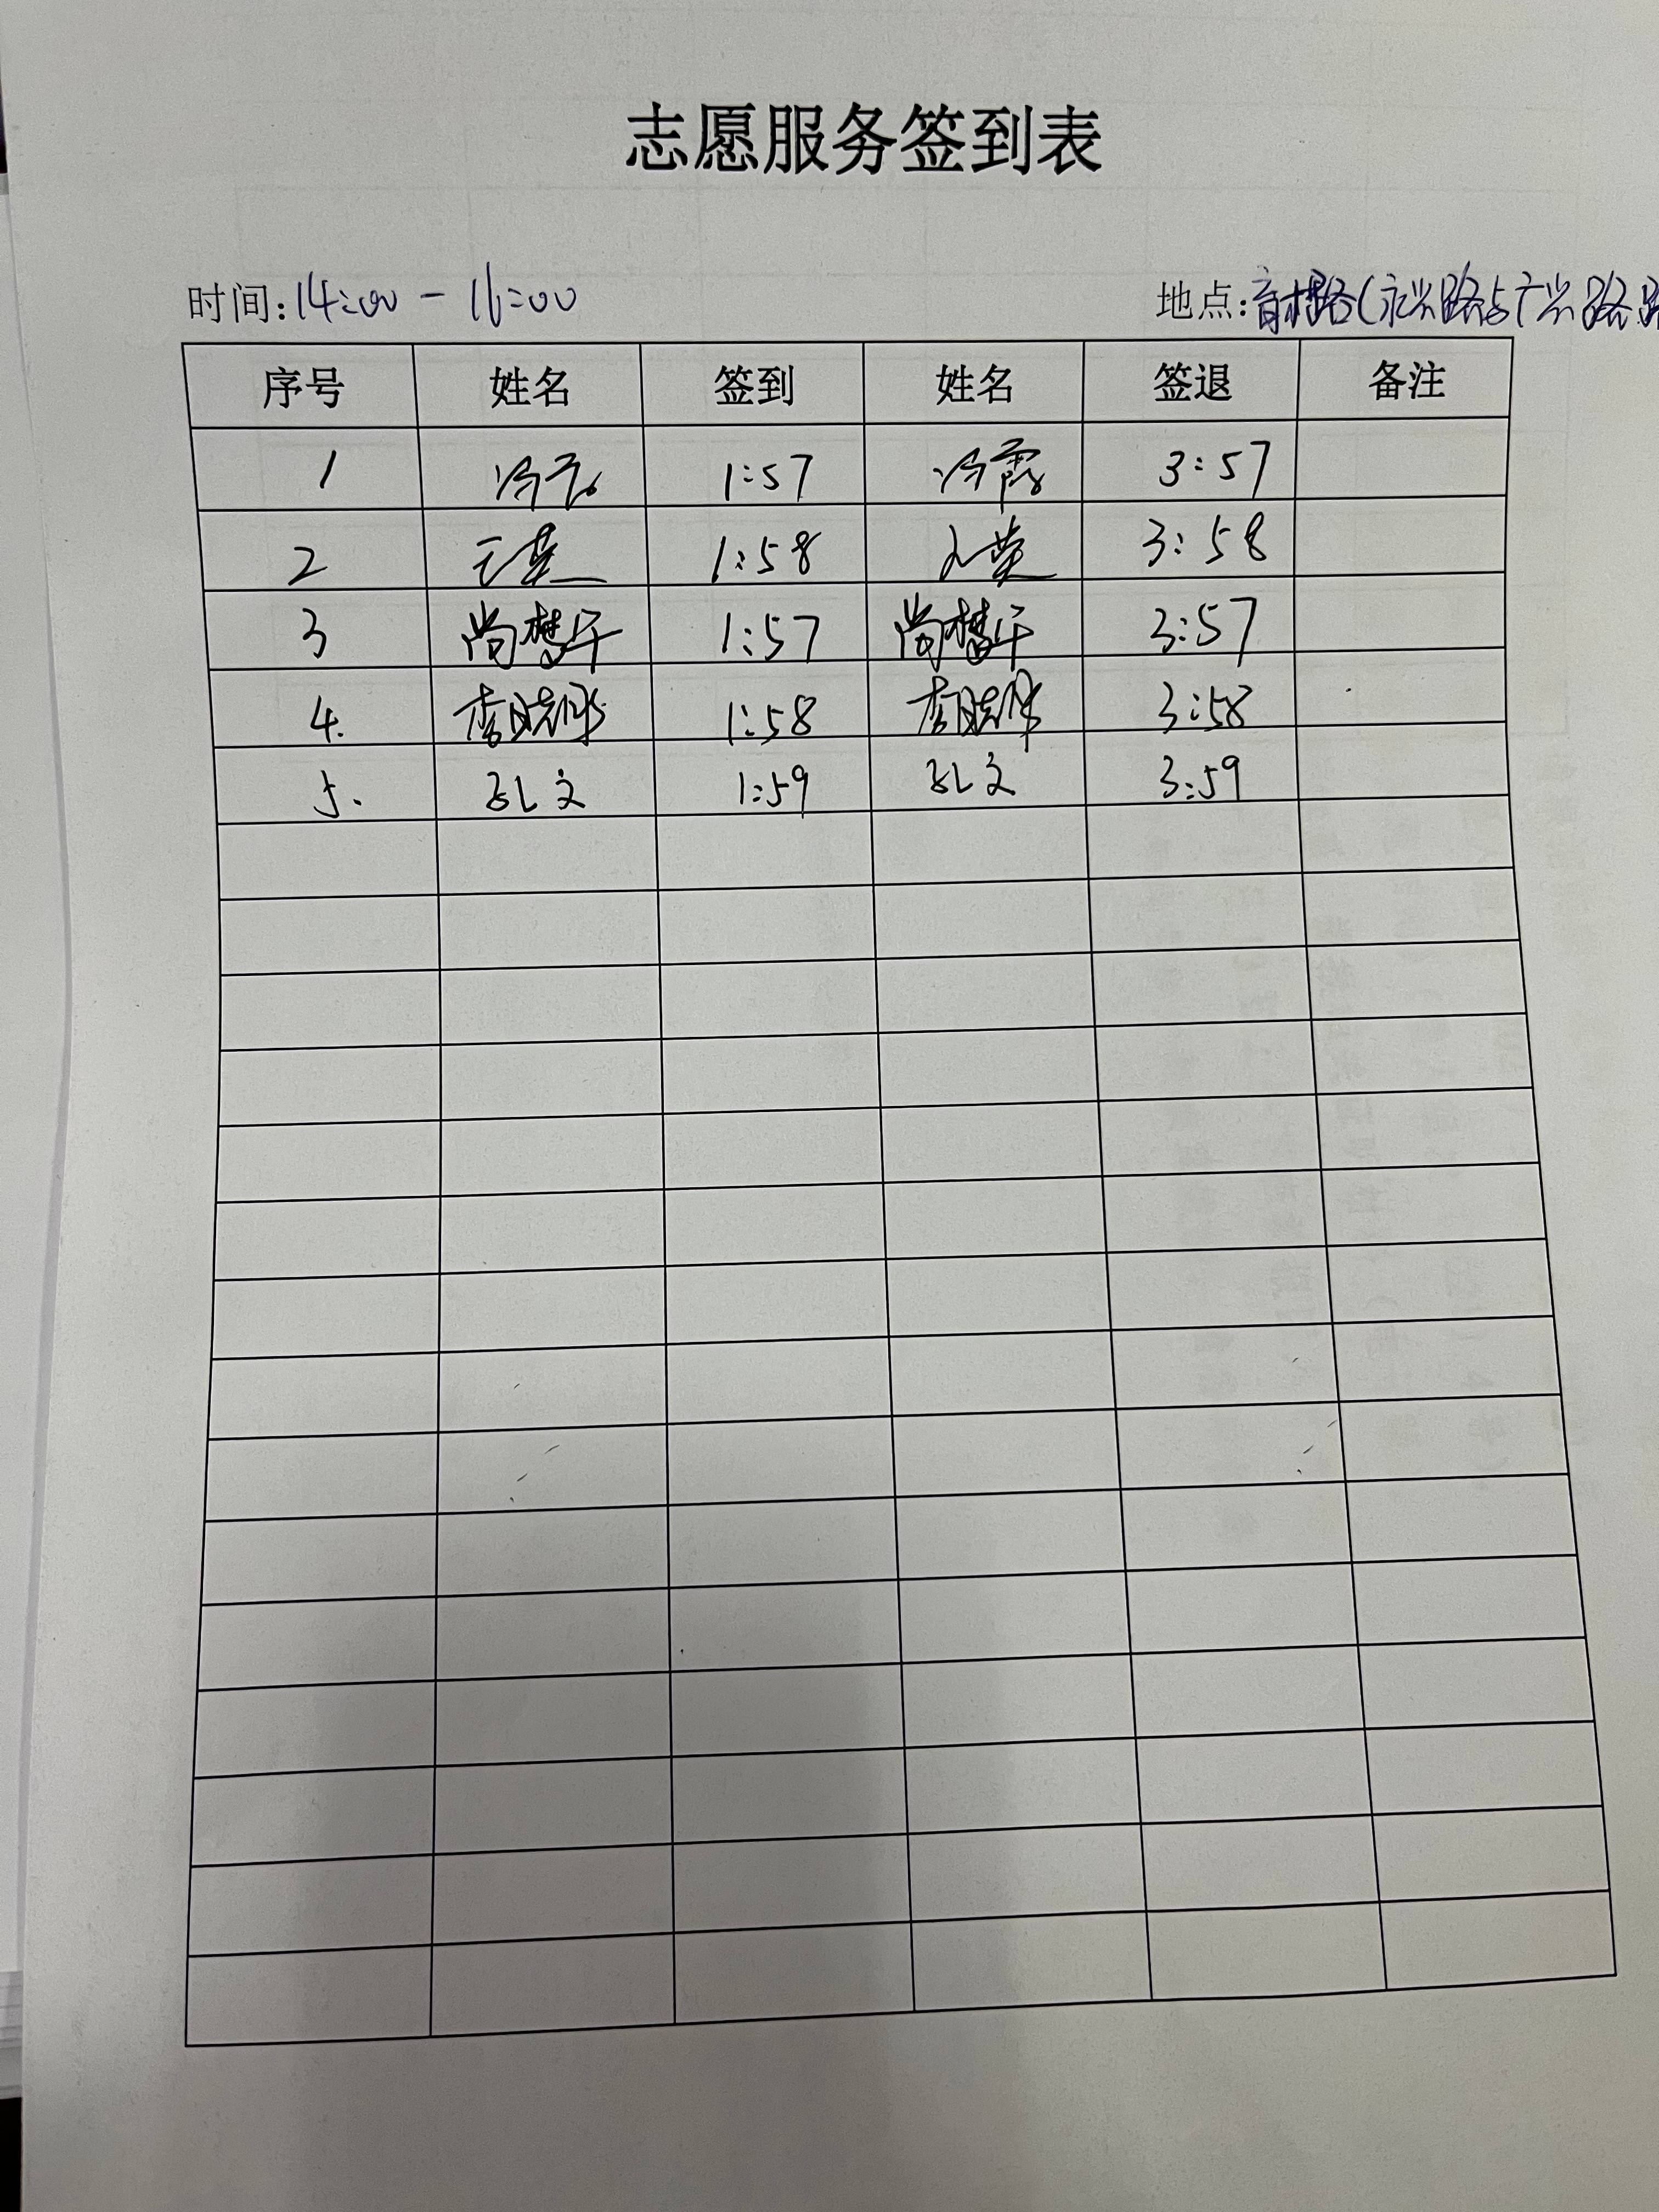 志愿服务签到表
时间:14:00 - 16:00 地点:育樹路(永兴路与广兴路路
序号 姓名 签到 姓名 签退 备注
1 冯霞 1:57 冯霞 3:57
2 1:58 3:58
3 尚梦午 1:57 尚梦午 3:57
4. 李晓彤 1:58 李晓彤 3:58
5. 孔文 1:59 孔文 3:59